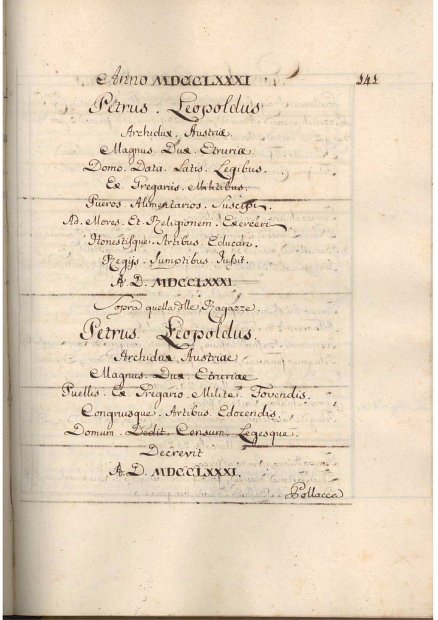 Anno MDCCLXXXI
141
Petrus . Leopoldus
Archidux . Austriæ
Magnus . Dux . Etruriæ
Domo . Data . Latis . Legibus .
Ex . Gregariis . Militibus .
Pueros . Alimentarios . Suscepi .
Ad . Mores . Et . Religionem . Exerceri
Honestisque . Artibus . Educari .
Regijs . Sumptibus . Jussit .
A . D . MDCCLXXXI .
Sopra quella delle Ragazze .
Petrus . Leopoldus .
Archidux . Austriae
Magnus . Dux . Etruriae
Puellis . Ex . Gregario . Milite . Fovendis .
Congruisque . Artibus . Edocendis .
Domum . Dedit . Censum . Legesque .
Decrevit
A . D . MDCCLXXXI .
Pollacco